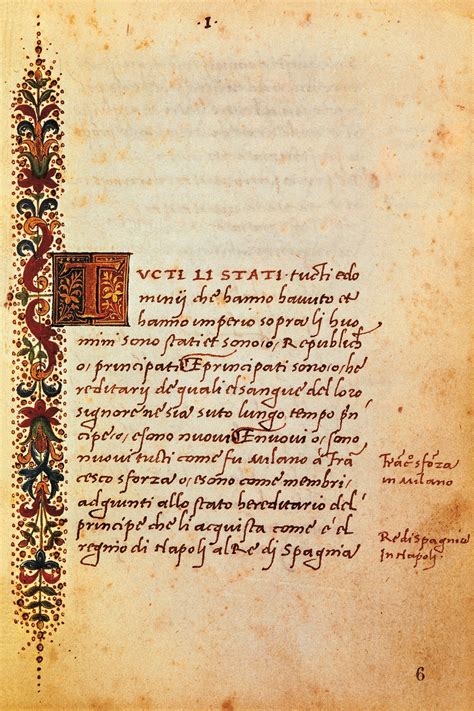 ·I·
TVCTI LI STATI · tucti e do
minij che hanno havuto et
hanno imperio sopra li huo
mini sono stati et sono, o, Republich
o, principati. E principati sono, o, he
reditarij de quali el sangue del loro
signore ne sia suto lungo tempo prin
cipe, o, e sono nuovi. E nuovi o, sono
nuovi tucti come fu Milano à Fra
cesco sforza o, e sono come membri,
adgiunti allo stato hereditario del
principe che li acquista come è el
regno di Napoli al Re di Spagnia
Frac.º sforza
in Milano
Re di Spagnia
In Napoli.
6